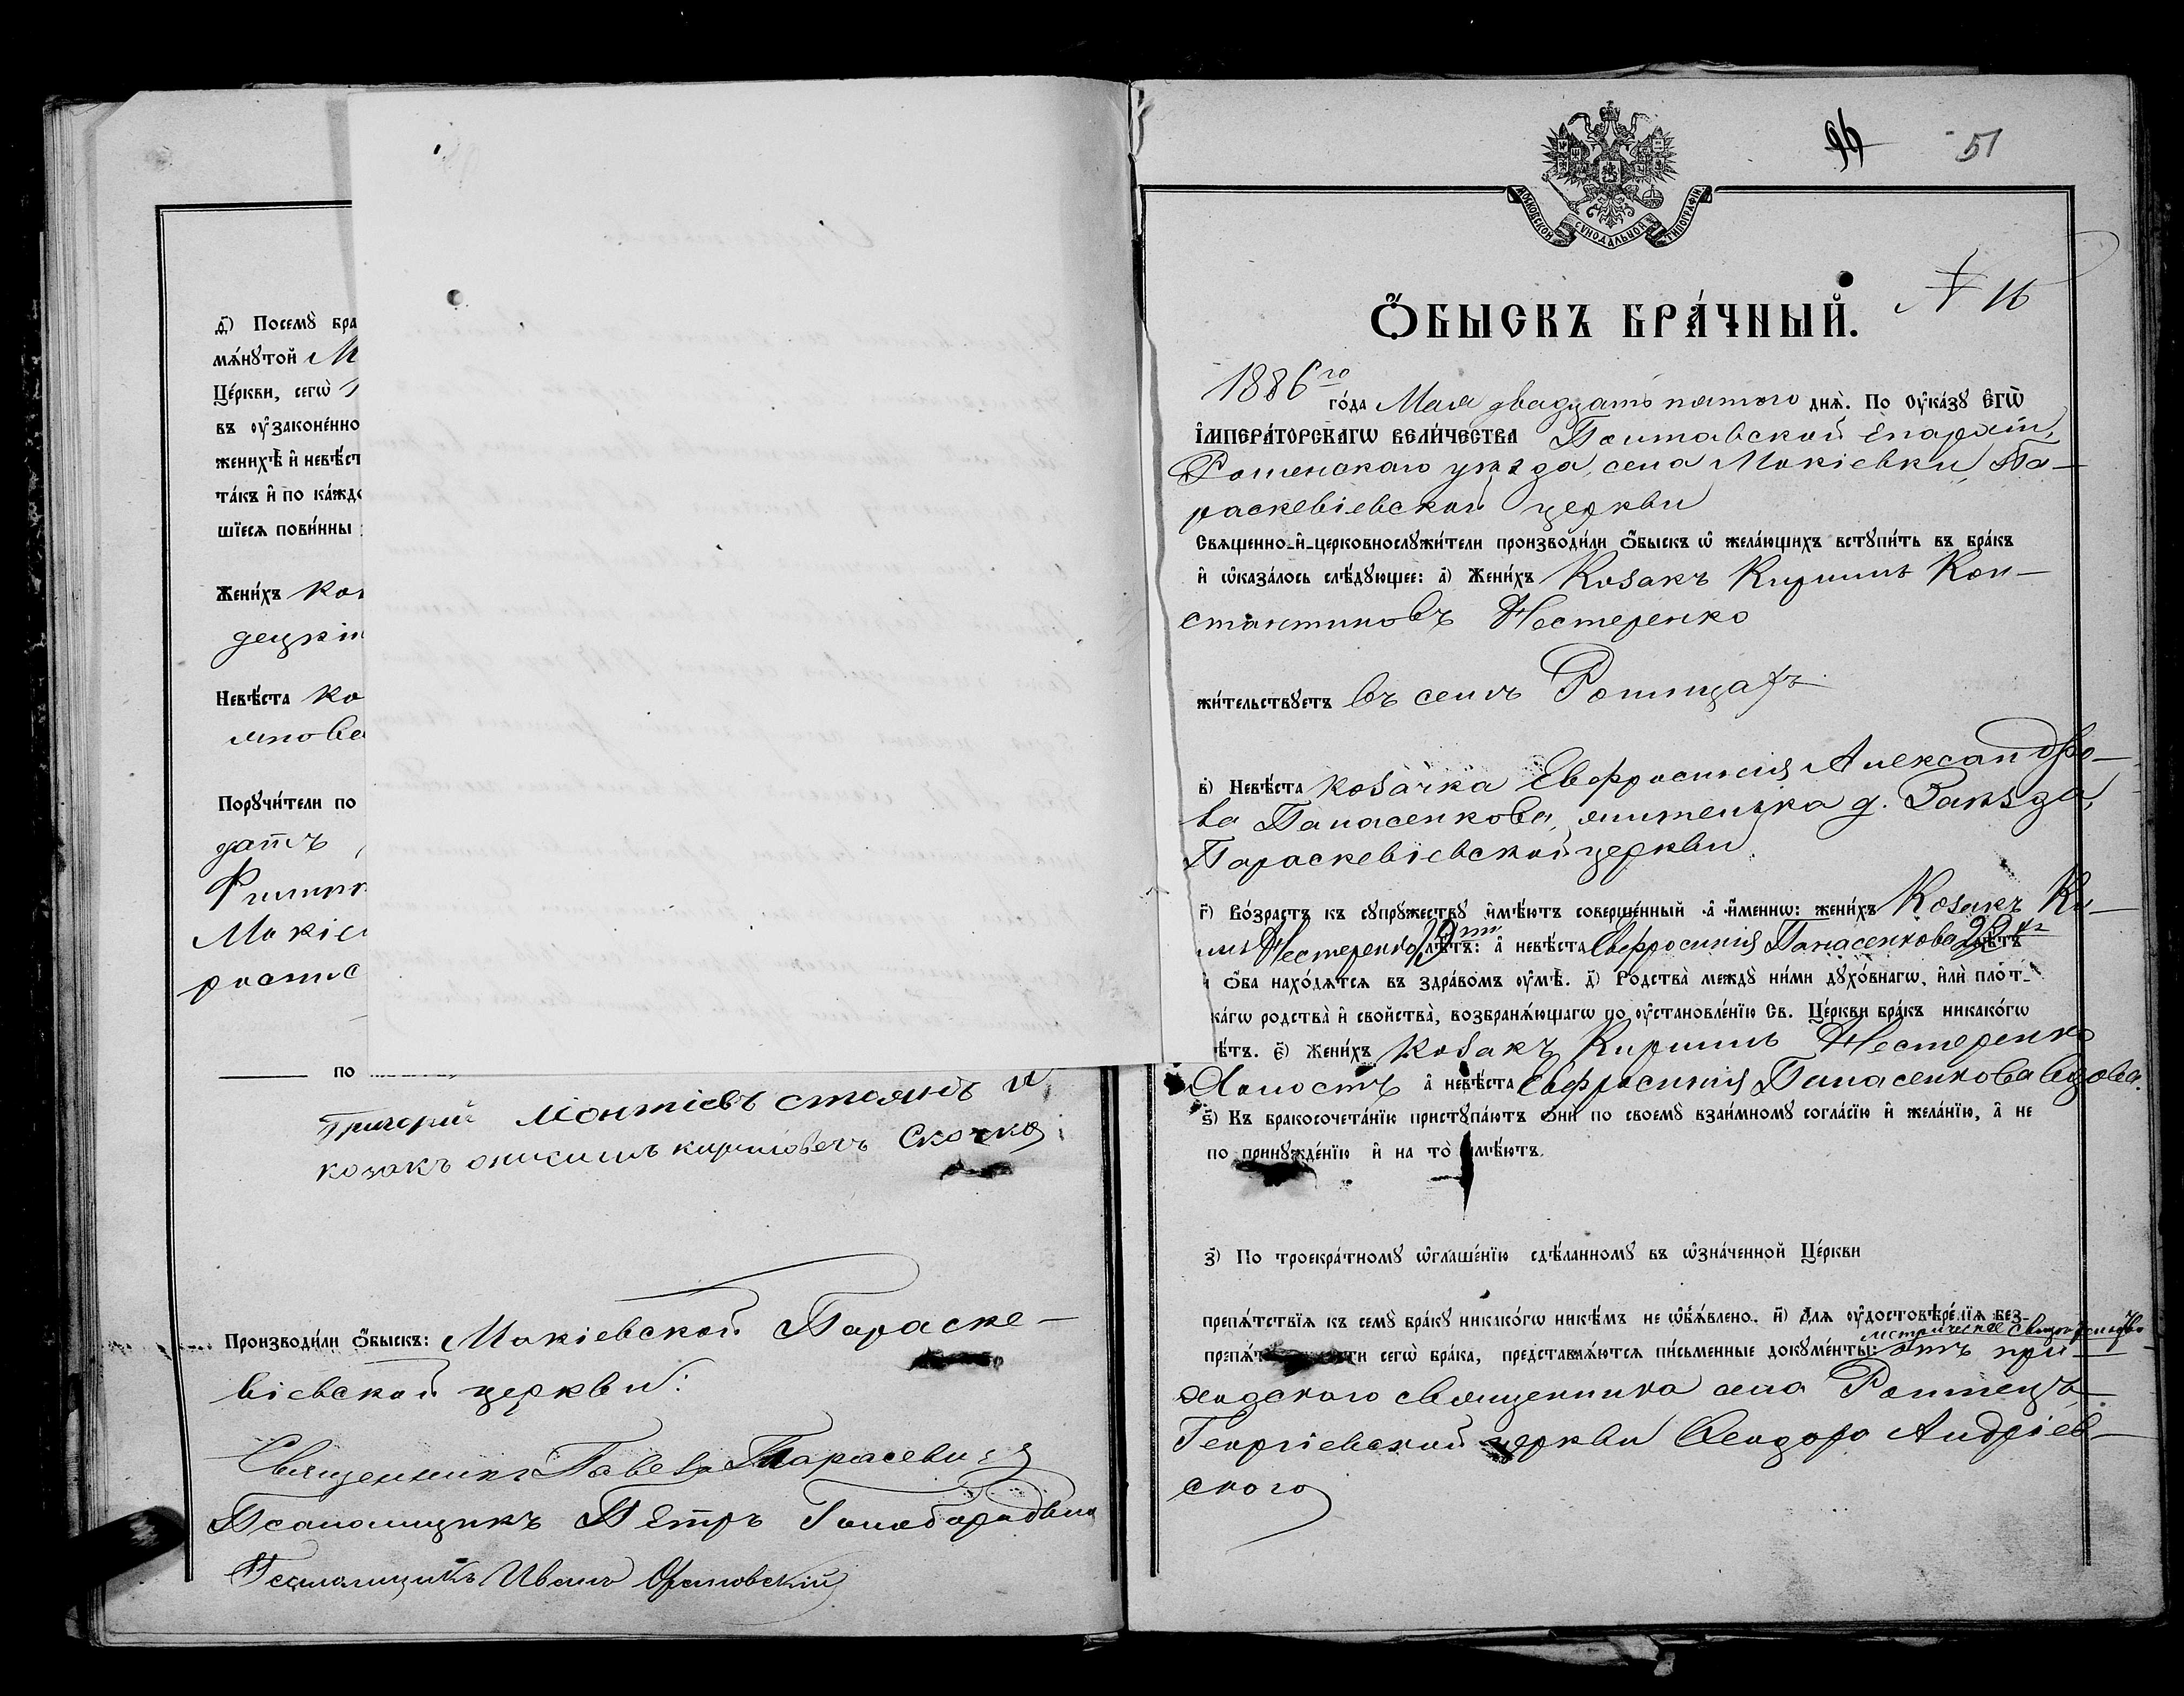 д҃) Посемꙋ бра
мѧ́нꙋтой М
Це́ркви, сегѡ̀
въ оу҆законе́нно
женихѣ̀ и҆ невѣ́ст
та́къ и҆ по ка́ждо
шїесѧ пови́нны
Жени́хъ Ко
децкій
Невѣ́ста Ко
Порꙋчи́тели по
датъ
Филипп
Мокіе
роспис
по
Григорій Монтіевъ Стоянъ и
козакъ онисимъ кириловичъ Скочко
Производи́ли ѻ҆́быскъ: Мокіевской Параске-
віевской церкви:
Священникъ Павелъ Тарасевичъ
Псаломщикъ Петръ
Псаломщикъ Иванъ
51
МОСКОВСКОЙ СѴНОДАЛЬНОЙ ТИПОГРАФІИ
Ѻ҆́БЫСКЪ БРА́ЧНЫЙ. N 16
1886го го́да Мая двадцать пятого днѧ̀. По оу҆ка́зꙋ Є҆гѡ̀
І҆мпера́торскагѡ вели́чества Полтавской Епархіи,
Роменскаго уѣзда, села Мокіевки, Па-
раскевіевской церкви
Свѧщенно-и҆-церковнослꙋжи́тели производи́ли ѻ҆́быскъ ѡ҆ жела́ющихъ встꙋпи́ть въ бра́къ
и҆ ѡ҆каза́лось слѣ́дꙋющее: а҃) Жени́хъ Козакъ Кирилъ Кон-
стантиновъ Нестеренко
жи́тельствꙋетъ въ селѣ
в҃) Невѣ́ста козачка Евфросинія Александро-
ва Панасенкова, жителька д.
Параскевіевской церкви
г҃) Во́зрастъ къ сꙋпрꙋ́жествꙋ и҆мѣ́ютъ соверше́нный а҆ и҆́меннѡ: жени́хъ Козакъ Ки-
илъ Нестеренко 19ти лѣ́тъ: а҆ невѣ́ста Евфросинія Панасенкова лѣ́тъ
ѻ҆́ба нахо́дѧтсѧ въ здра́вомъ оу҆мѣ̀. д҃) Родства̀ междꙋ̀ ни́ми дꙋхо́внагѡ, и҆лѝ пло́т-
ка́гѡ родства̀ и҆ сво́йства̀, возбранѧ́ющагѡ по оу҆становле́нїю Св. Це́ркви бра́къ никако́гѡ
ѣ́тъ. є҃) Жени́хъ козакъ Кирилъ Нестеренко
Холостъ а҆ невѣ́ста Евфросинія Панасенкова вдова.
ѕ҃) Къ бракосочета́нїю пристꙋпа́ютъ ѻ҆нѝ по своемꙋ̀ взаи́мномꙋ согла́сїю и҆ жела́нїю, а҆ не
по принꙋжде́нїю и҆ на то̀ и҆мѣ́ютъ.
з҃) По троекра́тномꙋ ѡ҆глаше́нїю сдѣ́ланномꙋ въ ѡ҆зна́ченной Це́ркви
препѧ́тствїѧ къ семꙋ̀ бра́кꙋ никако́гѡ никѣ́мъ не ѡ҆б̾ѧ́влено. и҃) Длѧ оу҆достовѣре́нїѧ без-
препѧ́т сти сегѡ̀ бра́ка, представлѧ́ютсѧ пи́сьменные докꙋме́нты: метрическое свидѣтельство отъ при-
ходского священника села
Георгіевской церкви Ѳеодора Андріев-
ского